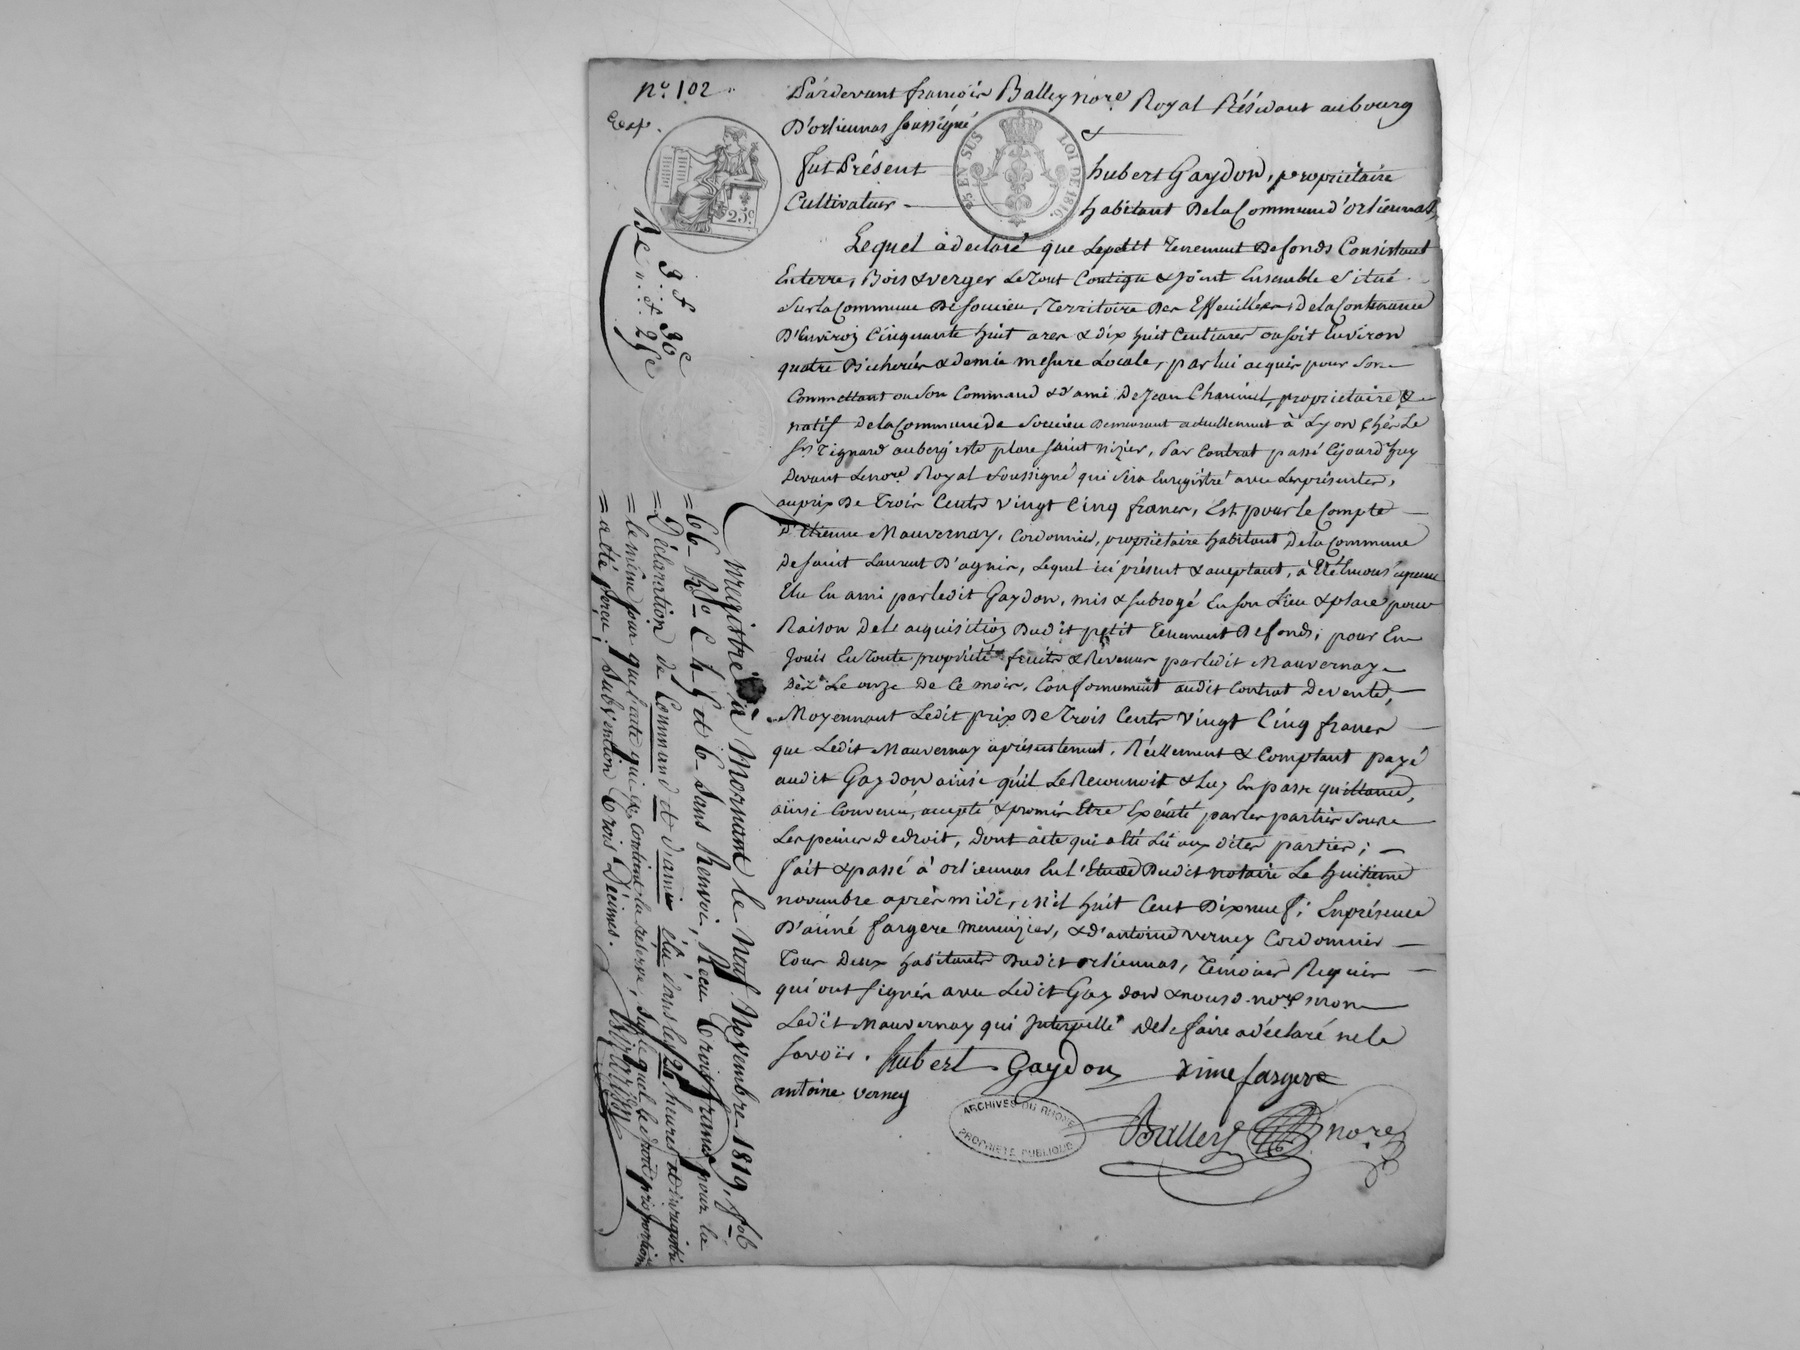 n.º 102.
Exp.
Pardevant françois Balley nore. Royal Résidant au bourg
D'orliennas soussigné &
25 EN SUS LOI DE 1816.
25c
fut Présent hubert Gaydon, propriétaire
Cultivateur habitant De la Commune d'orliennas,
Lequel à declaré que Le petit tenement De fonds Consistant
En terre, Bois & verger Le tout Contigu & joint Ensemble Situé
Sur la Commune De Soucieu, Territoire Des Effeuillées, De la Contenance
D'Environ Cinquante huit ares & dix huit Centiares ou soit Environ
quatre Bicherées & demie mesure Locale, par lui acquis pour Son
Commettant ou Son Command & d'ami De Jean Charvin, propriétaire &
natif De la Commune De Soucieu Demeurant actuellement à Lyon Chés Le
Sr. Tignard aubergiste place Saint Nizier, Par Contrat passé Cejourd'huy
Devant Le nore. Royal Soussigné qui Sera Enregistré avec Les présentes,
au prix De trois Cents vingt Cinq francs, Est pour le Compte
D'Etienne Mauvernay, Cordonnier, propriétaire habitant De la Commune
De Saint Laurent D'agnis, Lequel ici présent & acceptant, à Eté
Elu En ami par ledit Gaydon, mis & subrogé En son Lieu & place pour
Raison De L'acquisition Dudit petit tenement De fonds, pour En
Jouir En toute propriété fruits & Revenus par ledit Mauvernay
Dèz Le onze De Ce mois, Conformement audit Contrat De vente,
Moyennant Ledit prix De trois Cents vingt Cinq francs
que Ledit Mauvernay a présentement, Réellement & Comptant payé
audit Gaydon ainsi qu'il Le Reconnoit & Luy En passe quittance,
ainsi Convenu, accepté & promis Etre Exécuté par les parties Sous
Les peines De droit, Dont acte qui a été Lû aux dites parties;
fait & passé à orliennas En L'Etude Dudit notaire Le huitieme
novembre après midi, mil huit Cent Dix neuf; En présence
D'aimé fargere menuizier, & d'antoine verney Cordonnier
Tous Deux habitants Dudit orliennas, Témoins Requis
qui ont signés avec Ledit Gaydon & nous d. nore. non
Ledit Mauvernay qui Interpellé De le faire a déclaré ne le
savoir. hubert Gaydon aime fargere
antoine verney
Balley nore
ARCHIVES DU RHONE
PROPRIETE PUBLIQUE
3 f 30c
25c
enregistré à Mornant le Neuf Novembre 1819, fol
66 Ro C 4, 5 et 6 sans Renvoi, Recu trois francs pour la
Déclaration de Command et d'ami élu dans les 24 heures et enregistré
le même jour que l'acte qui en contient la reserve, sur lequel le droit proportionnel
a été perçu; subvention trois Décimes.